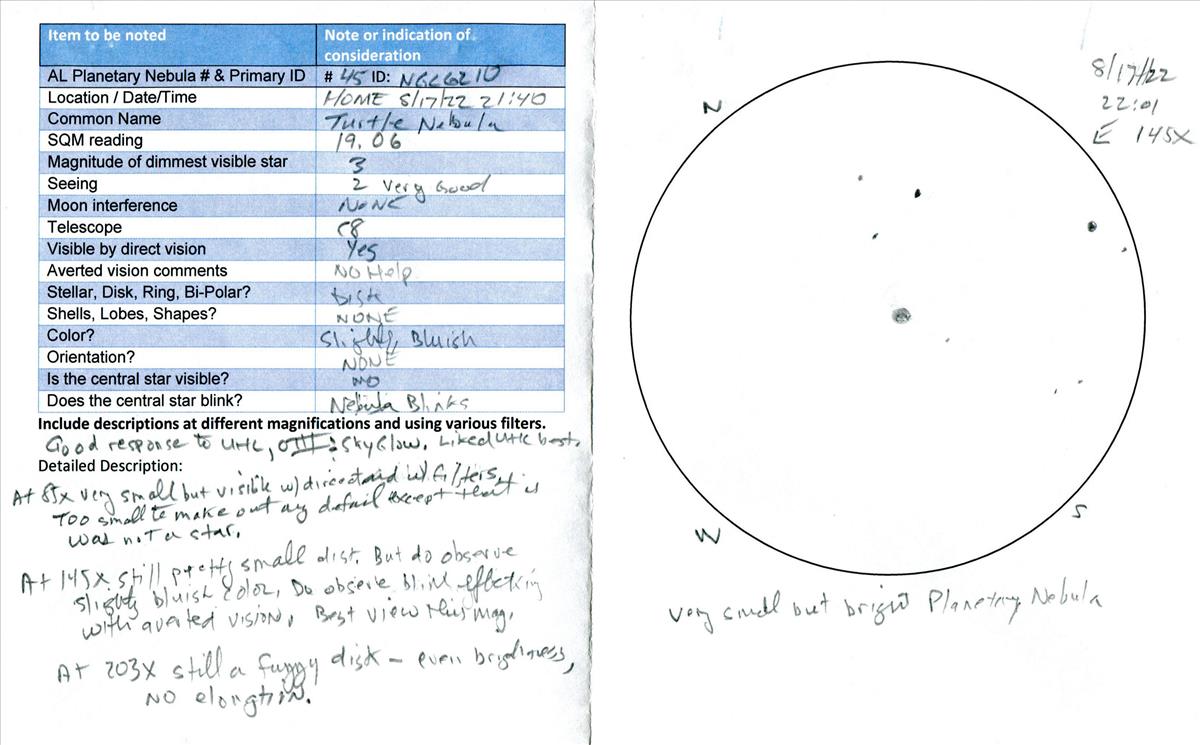 Item to be noted Note or indication of consideration
AL Planetary Nebula # & Primary ID # 45 ID: NGC6210
Location / Date/Time HOME 8/17/22 21:40
Common Name Turtle Nebula
SQM reading 19.06
Magnitude of dimmest visible star 3
Seeing 2 Very Good
Moon interference NONE
Telescope C8
Visible by direct vision Yes
Averted vision comments NO Help
Stellar, Disk, Ring, Bi-Polar? Disk
Shells, Lobes, Shapes? NONE
Color? Slightly Bluish
Orientation? NONE
Is the central star visible? NO
Does the central star blink? Nebula Blinks
Include descriptions at different magnifications and using various filters.
Good response to UHC, OIII & SkyGlow. Liked UHC best.
Detailed Description:
At 85x very small but visible w/direct and w/filters.
Too small to make out any detail except that it
was not a star.
At 145x still pretty small disk. But do observe
slightly bluish color. Do observe blinking effect
with averted vision. Best view this mag.
At 203x still a fuzzy disk – even brightness,
NO elongtion.
8/17/22
22:01
E 145x
N
S
W
Very small but bright Planetary Nebula